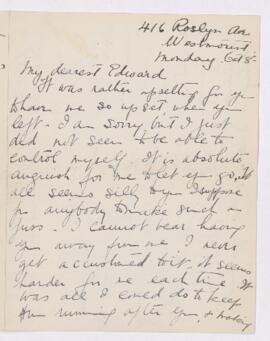 416 Roslyn Av.
Westmount
Monday Oct 8.
My dearest Edward
It was rather upsetting for you
to have me so upset when you
left. I am sorry but I just
did not seem to be able to
control myself. It is absolute
anguish for me to let you go, it
all seems silly to you I suppose
for anybody to make such a
fuss. I cannot bear having
you away from me. I never
get accustomed to it, it seems
harder for me each time. It
was all I could do to keep
from running after you, &